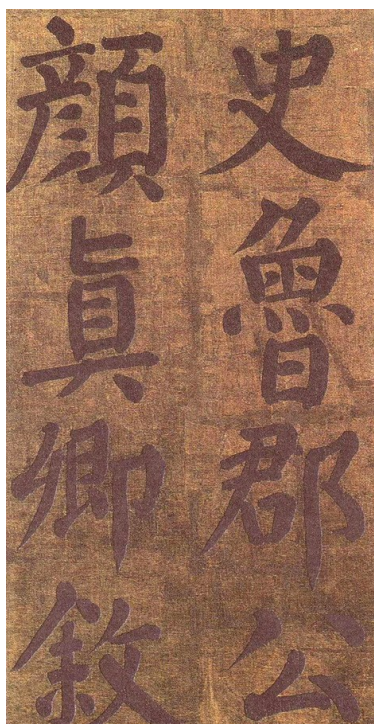 史魯郡公
顔真卿敘